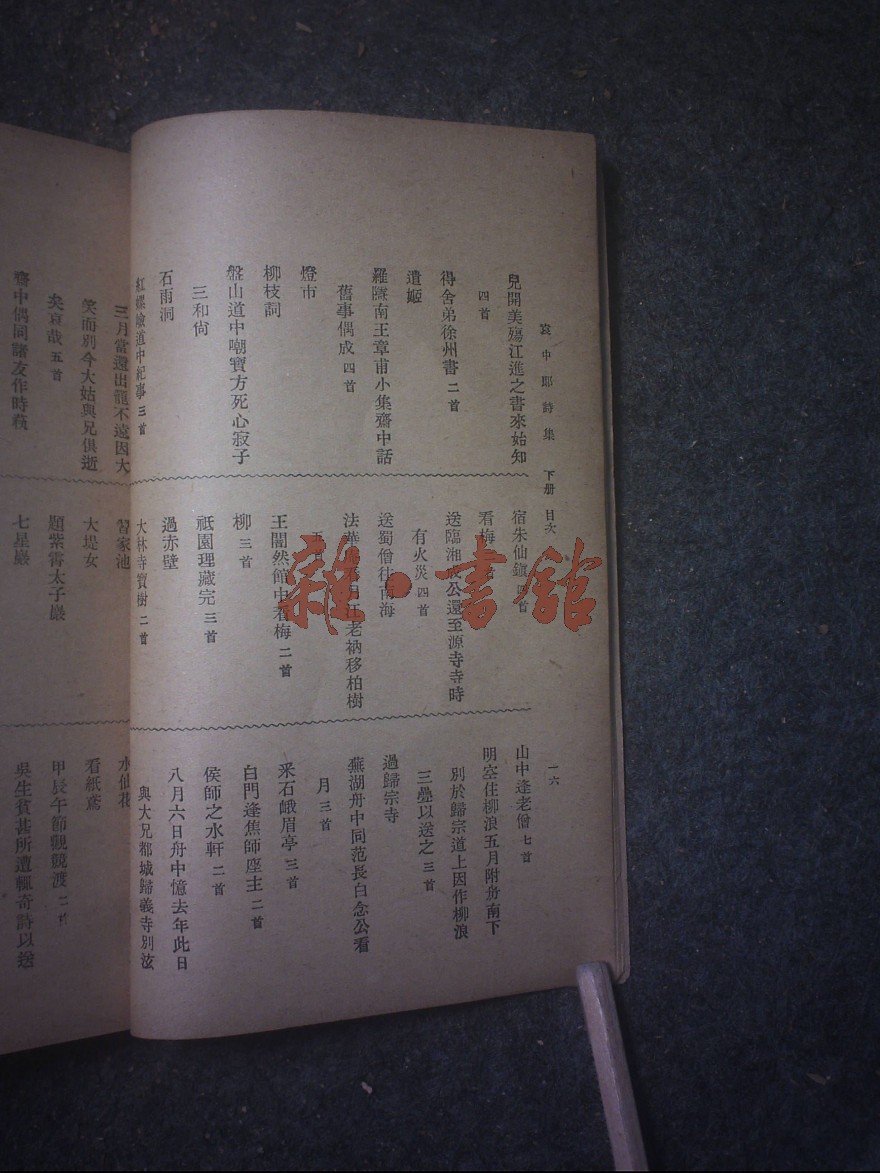 袁中郎詩集 下册 目次
一六
兒開美殤江進之書來始知
四首
得舍弟徐州書 二首
遣姬
羅隧南王章甫小集齋中話
舊事偶成 四首
燈市
柳枝詞
盤山道中嘲寶方死心寂子
三和尙
石雨洞
紅螺嶮道中紀事 三首
宿朱仙鎭 四首
看梅
送臨湘成公還至源寺寺時
有火災 四首
送蜀僧往南海
法華 老衲移柏樹
五首
王閣然館中看梅 二首
柳 三首
祇園理藏完 三首
過赤壁
大林寺寶樹 二首
山中逢老僧 七首
明空住柳浪五月附舟南下
別於歸宗道上因作柳浪
三疊以送之 三首
過歸宗寺
蕪湖舟中同范長白念公看
月 三首
采石峨眉亭 三首
白門逢焦師座主 二首
侯師之水軒 二首
八月六日舟中憶去年此日
與大兄都城歸義寺別泫
三月當還出龍不遠因大
笑而別今大姑與兄俱逝
矣哀哉 五首
齋中偶同諸友作時蓺
習家池
大堤女
題紫霄太子巖
七星巖
水仙花
看紙鳶
甲辰午節觀競渡 二首
吳生貧甚所遭輒奇詩以送
雜·書館